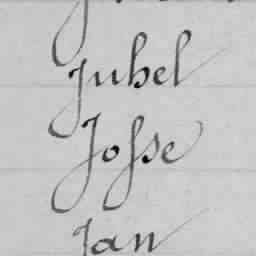 Juhel
Josse
Jan